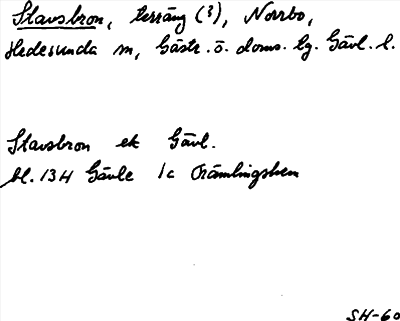 Stavsbron, terräng (?), Norrbo,
Hedesunda sn, Gästr. ö. doms. lg. Gävl. l.
Stavsbron ek Gävl.
bl. 13H Gävle 1c
SH-60